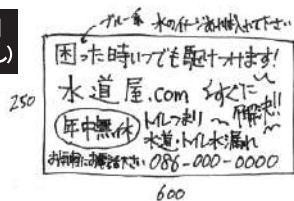 ブルー系 水のイメージあれば入れて下さい
困った時いつでも駆けつけます!
水道屋.com すぐに解決!!
年中無休
トイレつまり
水道・トイレ水漏れ
お気軽にお電話下さい 086-000-0000
250
600